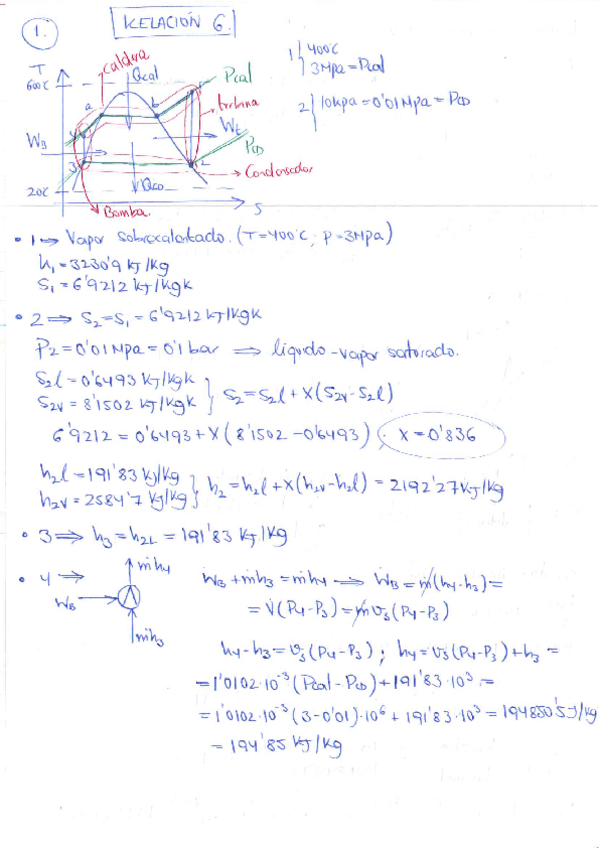 1.
RELACIÓN 6.
1) 400C
3Mpa = Pcal
2) 10Kpa = 0'01Mpa = PCD
T
600C
caldera
Qcal
Pcal
turbina
a
b
1
WB
WT
PCD
4
3
2
Condensador
20C
QCD
S
Bomba.
• 1 → Vapor sobrecalentado. (T=400°C; P=3Mpa)
h₁ = 3230'9 KJ/Kg
S₁ = 6'9212 KJ/KgK
• 2 ⟹ S₂ = S₁ = 6'9212 KJ/KgK
P₂ = 0'01 Mpa = 0'1 bar ⟹ líquido-vapor saturado.
S₂l = 0'6493 KJ/KgK
S₂v = 8'1502 KJ/KgK } S₂ = S₂l + X(S₂v - S₂l)
6'9212 = 0'6493 + X(8'1502 - 0'6493). X = 0'836
h₂l = 191'83 KJ/Kg
h₂v = 2584'7 KJ/Kg } h₂ = h₂l + X(h₂v - h₂l) = 2192'27 KJ/Kg
• 3 ⟹ h₃ = h₂L = 191'83 KJ/Kg
• 4 ⟹
ṁh₄
WB
ṁh₃
ẆB + ṁh₃ = ṁh₄ ⟹ ẆB = ṁ(h₄-h₃) =
= V̇(P₄-P₃) = ṁv₃(P₄-P₃)
h₄-h₃ = v₃(P₄-P₃); h₄ = v₃(P₄-P₃)+h₃ =
= 1'0102·10⁻³(Pcal - PCD) + 191'83·10³ =
= 1'0102·10⁻³(3-0'01)·10⁶ + 191'83·10³ = 194850'5J/Kg
= 194'85 KJ/Kg